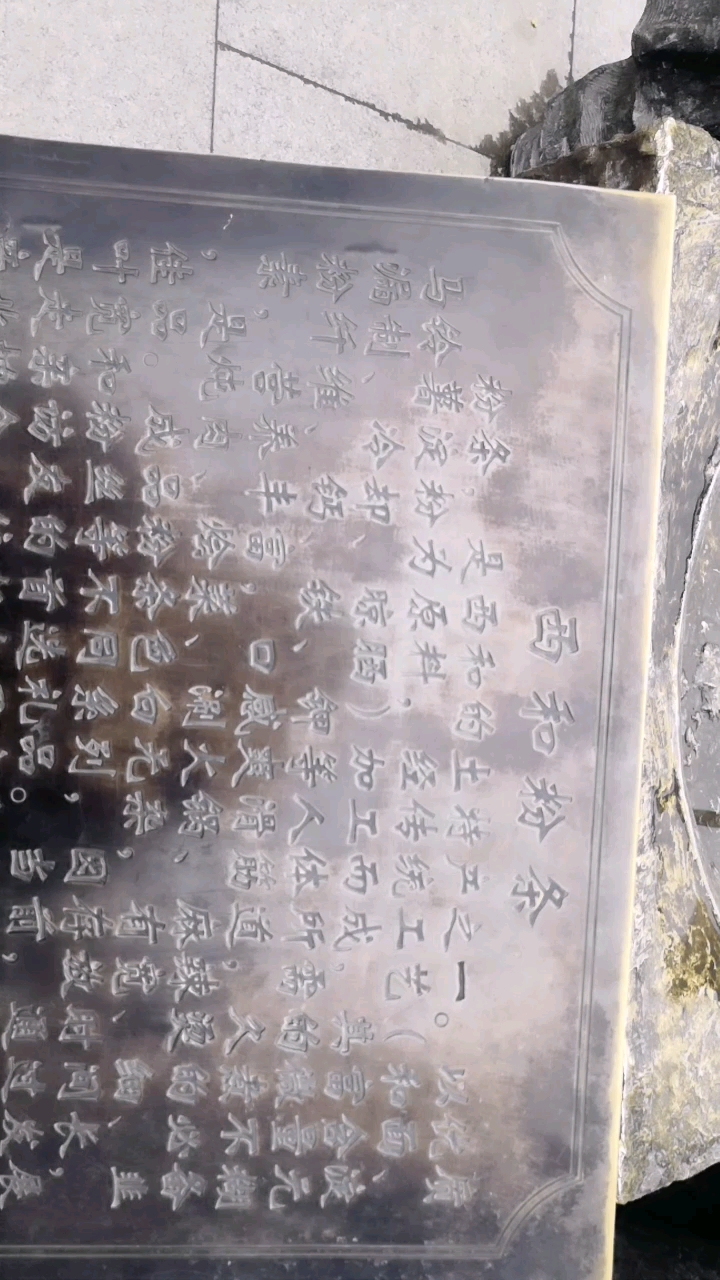 西和粉条
粉条,是西和的土特产之一。以优质
马铃薯淀粉为原料,经传统工艺(和面、
漏制、冷却、晾晒)加工而成,其富含淀
粉、纤维、钙、铁、钾等人体所需的微量元
素,营养丰富,口感爽滑筋道,久煮不糊
,是炖肉、烩菜、涮火锅、麻辣烫的必备
佳品。成品粉条色白无杂,有宽、细、韭
叶宽和粉丝等不同系列,因存放时间长,
是走亲访友的首送礼品。当前,通过发展